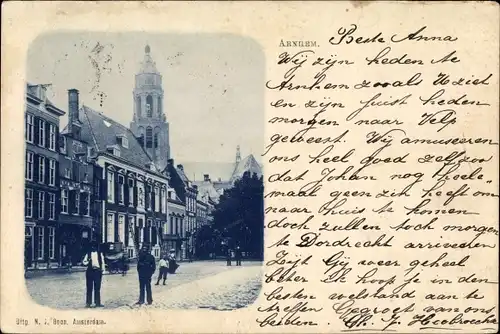 ARNHEM.
Beste Anna
Wij zijn heden te
Arnhem zooals U ziet
en zijn juist heden
morgen naar Velp
geweest. Wij amuseeren
ons heel goed zelf zoo
dat Johan nog heele-
maal geen zin heeft om
naar huis te komen
doch zullen toch morgen
te Dordrecht arriveeren
Zijt Gij weer geheel
beter Ik hoop je in den
besten welstand aan te
treffen Gegroet van ons
beiden.
Uitg. N. J. Boon, Amsterdam.